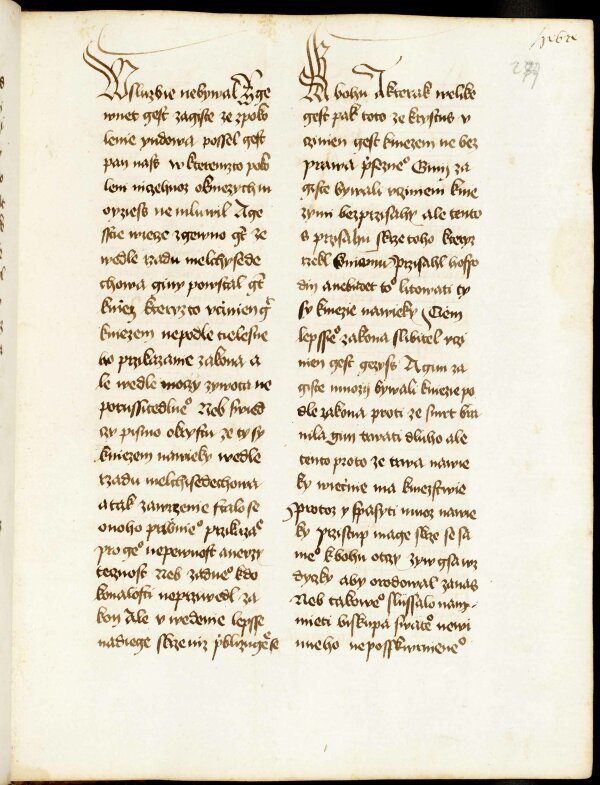 W sluzbie nebywal A ge
wnet gest zagiste ze z poko
lenie yudowa possel gest
pan nass w kteremzto poko
leni niczehoz o knezych m
oyziess nemluwil A ge
sstie wieze zgewno gt ze
wedle rzadu melchysede
chowa giny powstal gt
kniez kteryzto vcinien gt
kniezem nepodle tielestne
ho przikazanie zakona a
le wedle moczy zywota ne
porussitedlneo Neb swied
czy pismo o krystu ze ty sy
kniezem nawieky wedle
rzadu melchisedechowa
a tak zawrzenie stalo se
onoho prwnieo przikazaō
pro geo nepewnost a neuzy
tecznost Neb zadneo k do
konalosti neprziwedl za
kon Ale v wedenie lepsse
nadiege skrze niz przblizugem se
k bohu A kterak welike
gest pak toto ze krystus v
czinien gest kniezem ne bez
prawa przisezneo Gini za
giste bywali vczineni knie
zymi bez przisahy ale tento
s przisahu skrze toho kteryz
rzekl k niemu Przisahl hospo
din a nebudet toō litowati ty
sy kniezie nawieky O czem
lepsseo zakona slibitel vczi
nien gest gezyss A gini za
giste mnozy bywali kniezie po
dle zakona proti ze smrt bra
nila gim trwati dluho ale
tento proto ze trwa nawie
ky wiecznie ma kniezstwie
Protoz y spasyti moz nawie
ky przistup magie skrze se sa
meo k bohu otczy zyw gsa wz
dyczky aby orodowal za nas
Neb takoweo slussalo nam
mieti biskupa swateo newi
nneho neposskwrneneo